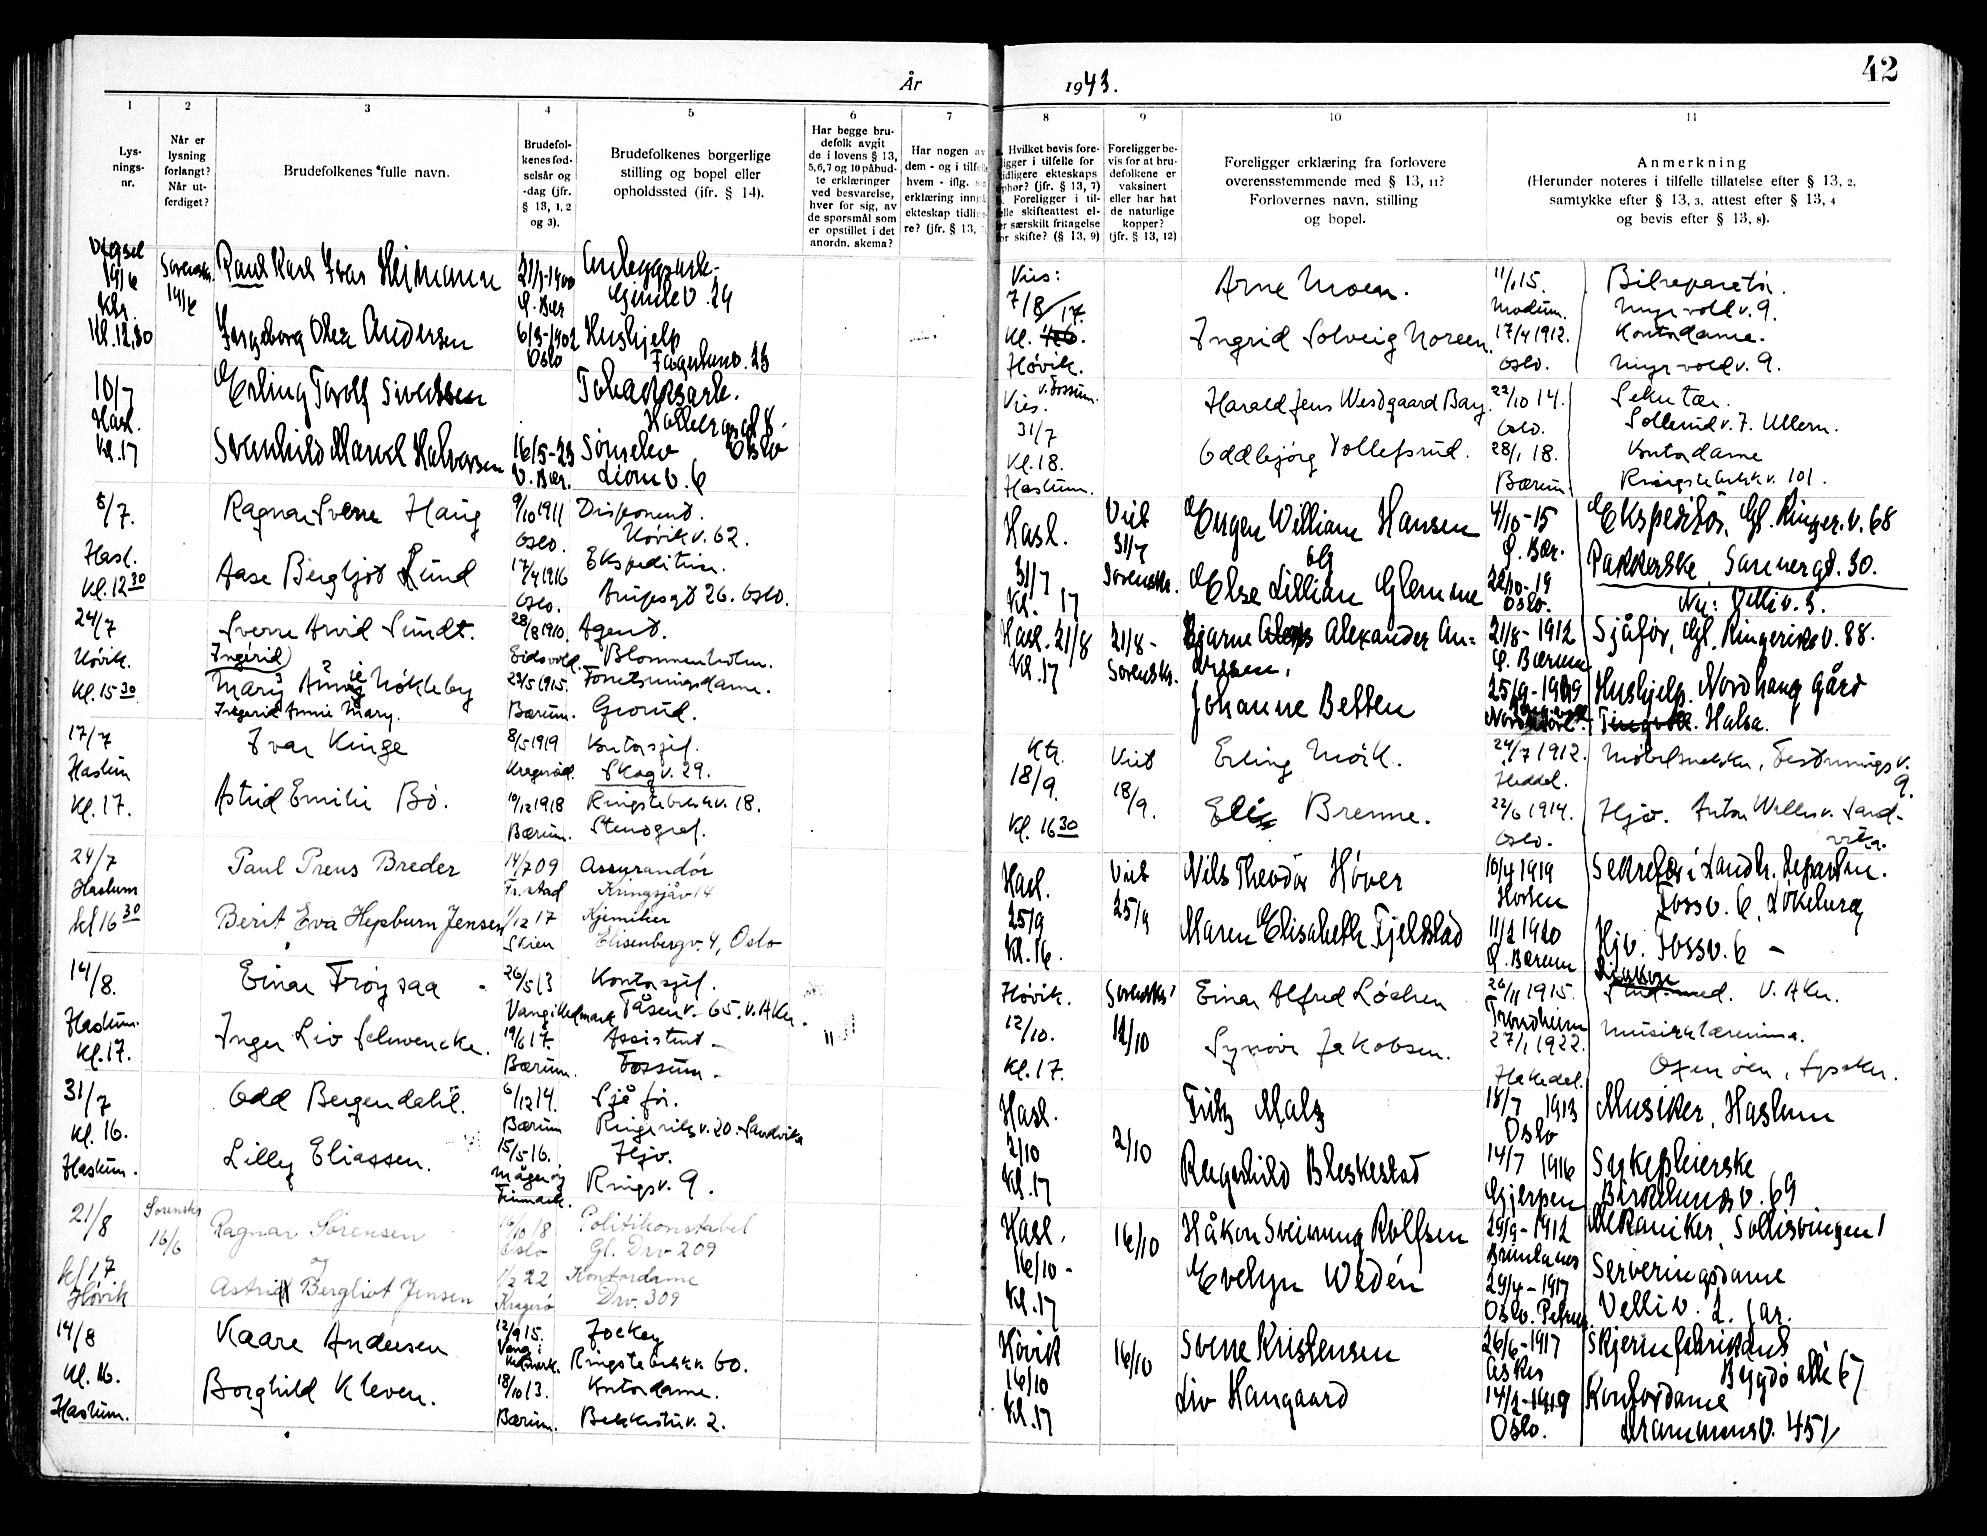 42
År 1943.
1
2
3
4
5
6
7
8
9
10
11
Lys-
nings-
nr.
Når er
lysning
forlangt?
Når ut-
ferdiget?
Brudefolkenes fulle navn.
Brudefol-
kenes fød-
selsår og
-dag (jfr.
§ 13, 1, 2
og 3).
Brudefolkenes borgerlige
stilling og bopel eller
opholdssted (jfr. § 14).
Har begge bru-
defolk avgit
de i lovens § 13,
5,6,7 og 10 påbud-
te erklæringer
ved besvarelse,
hver for sig, av
de spørsmål som
er opstillet i det
anordn. skema?
Har nogen av
dem - og i tilfelle
hvem - iflg.
erklæring inngått
ekteskap tidlige-
re? (jfr. § 13,
Hvilket bevis fore-
ligger i tilfelle for
tidligere ekteskaps
ophør? (jfr. § 13, 7)
Foreligger i til-
felle skifteattest el-
ler særskilt fritagelse
for skifte? (§ 13, 9)
Foreligger be-
vis for at bru-
defolkene er
vaksinert
eller har hat
de naturlige
kopper?
(jfr. § 13, 12)
Foreligger erklæring fra forlovere
overensstemmende med § 13, 11?
Forlovernes navn, stilling
og bopel.
Anmerkning
(Herunder noteres i tilfelle tillatelse efter § 13, 2,
samtykke efter § 13, 3, attest efter § 13, 4
og bevis efter § 13, 8).
19/6
Kl. 12,30
Sorenskr.
19/6
Karl Ivar Heimann
21/1-1900
Ø. Bær
Andersen
6/3-1902
Oslo
Hushjelp
10/7
Hasl.
Kl. 17
Erling Torolf Sivertsen
Svanhild Marvel Halvorsen
16/5-23
V. Bær.
Oslo
Liom v. 6
8/7.
Hasl.
Kl. 12 30
Ragnar Sverre Haug
9/10 1911
Oslo.
Disponent.
Høvik v. 62.
Aase Bergljot Lund
17/4 1916
Oslo.
Ekspeditrise.
26. Oslo.
24/7
Høvik.
Kl. 15 30
Sverre Arvid Sundt.
28/8 1910.
Eidsvold.
Agent.
Blommenholm.
Ingerid
Mary Annie Nökleby
Ingerid Annie Mary.
23/5 1915.
Bærum.
Forretningsdame.
Grorud.
17/7
Haslum
Kl. 17.
Ivar Kinge
8/5 1919
Kragerød.
Kontorsjef.
Skog v. 29.
Astrid Emilie Bö.
10/12 1918
Bærum.
Ringstebekk v. 18.
Stenograf.
24/7
Haslum
kl 16 30
Paul Preus Breder
14/7 09
Fr.stad
Assurandör
Kringsjåv 14
Berit Eva Hepburn Jensen
1/12 17
Skien
Kjemiker
Elisenbergv. 4, Oslo
14/8.
Haslum.
Kl. 17.
Einar Tröysaa
26/5 13
Vang i Hedmark
Kontorsjef.
Tåsen v. 65. V. Aker.
Inger Liv Schwencke.
19/6 17.
Bærum.
Assistent
Fossum
31/7
Kl. 16.
Haslum.
Odd Bergendahl.
6/12 14.
Bærum
Sjåför.
Ringeriks v. 20. Sandvika
Lilly Eliassen.
15/5-16.
Magerøy
Finnmark.
Hjv.
Rings v. 9.
21/8
kl 17
Høvik
Sorenskr
16/6
Ragnar Sørensen
og
16/10 18
Oslo
Politikonstabel
Gl. Drv 209
Astrid Bergliot Jensen
1/2 22
Kragerø
Kontordame
Drv. 309
14/8
Kl. 16.
Haslum.
Kaare Andersen
12/9 15.
Vang i
Hedmark.
Jockey
Ringstebekk v. 60.
Borghild Kleven.
18/10 13.
Bærum.
Kontordame.
Bekkestu v. 2.
Vies:
7/8
Kl. 17.
Høvik.
Arne Moen.
11/1 15.
Modum.
Bilreparatör.
Myrvold v. 9.
Ingrid Solveig Noreen.
17/4 1912.
Oslo.
Kontordame.
Myrvold v. 9.
v. Fossum.
Vies.
31/7
Kl. 18.
Haslum.
Harald Jens Westgaard Bay
22/10 14.
Oslo.
Sekretær.
Sollerud v. 7. Ullern.
Oddbjörg Tollefsrud.
28/1 18.
Bærum.
Kontordame
Ringstebekk v. 101.
Hasl.
31/7
Kl. 17
Viet
31/7
Sorenskr.
Eugen William Hansen
og
4/10-15
Ø. Bær.
Ekspeditör, Gl. Ringer. v. 68
Else Lillian Glemme
22/10-19
Oslo.
Pakkerske, Sannergt. 30.
Hasl. 21/8
Kl. 17
21/8-
Sorenskr.
Bjarne Alexander An-
dersen,
21/8-1912
Ø. Bærum
Sjåför, Gl. Ringeriks v. 88.
Johanne Betten
25/9-1919
Hushjelp. Nordhaug Gård
Halsa.
18/9.
Kl. 16 30
Viet
18/9.
Erling Moik.
24/7 1912.
Heddal.
Møbelsnekker, Festnings v.
9.
Elis Brenne.
22/6 1914.
Oslo.
Hjv. Anton Walles v. Sand-
vika.
Hasl.
25/9
Kl. 16.
Viet
25/9
Nils Theodor Höver
10/4 1919
Horten
Sekretær i Landbr. Departem.
Foss v. 6, Løkeberg
Maren Elisabeth Fjeldstad
11/2 1920
Ø. Bærum
Hjv. Foss v. 6 -
Høvik.
12/10.
Kl. 17.
Sorenskr
12/10
Einar Alfred Löchen
26/11 1915.
Trondheim
Stud. med. V. Aker.
Synöve Jakobsen.
27/1 1922.
Hakedal.
Musikklærerinne.
Oxenöen, Lysaker.
Hasl.
2/10
Kl. 17
2/10
Fritz Malz
18/7 1913
Oslo
Musiker, Haslum
Ragnhild Bleskestad
14/7 1916
Gjerpen
Sykepleierske
Birkelunds v. 69
Hasl.
16/10-
Kl. 17
16/10
Håkon Sveinung Rolfsen
29/9-1912
Brunlanes
Mekaniker, Sollisvingen 1
Evelyn Wedén
29/4-1917
Serveringsdame
Velli v. 2. Jar.
Høvik
16/10
Kl. 17
16/10
Sverre Kristensen
26/6-1917
Asker
Skjermfabrikant
Bygdø allé 67
Liv Haugaard
14/2-1919
Oslo.
Kontordame
Drammens v. 451